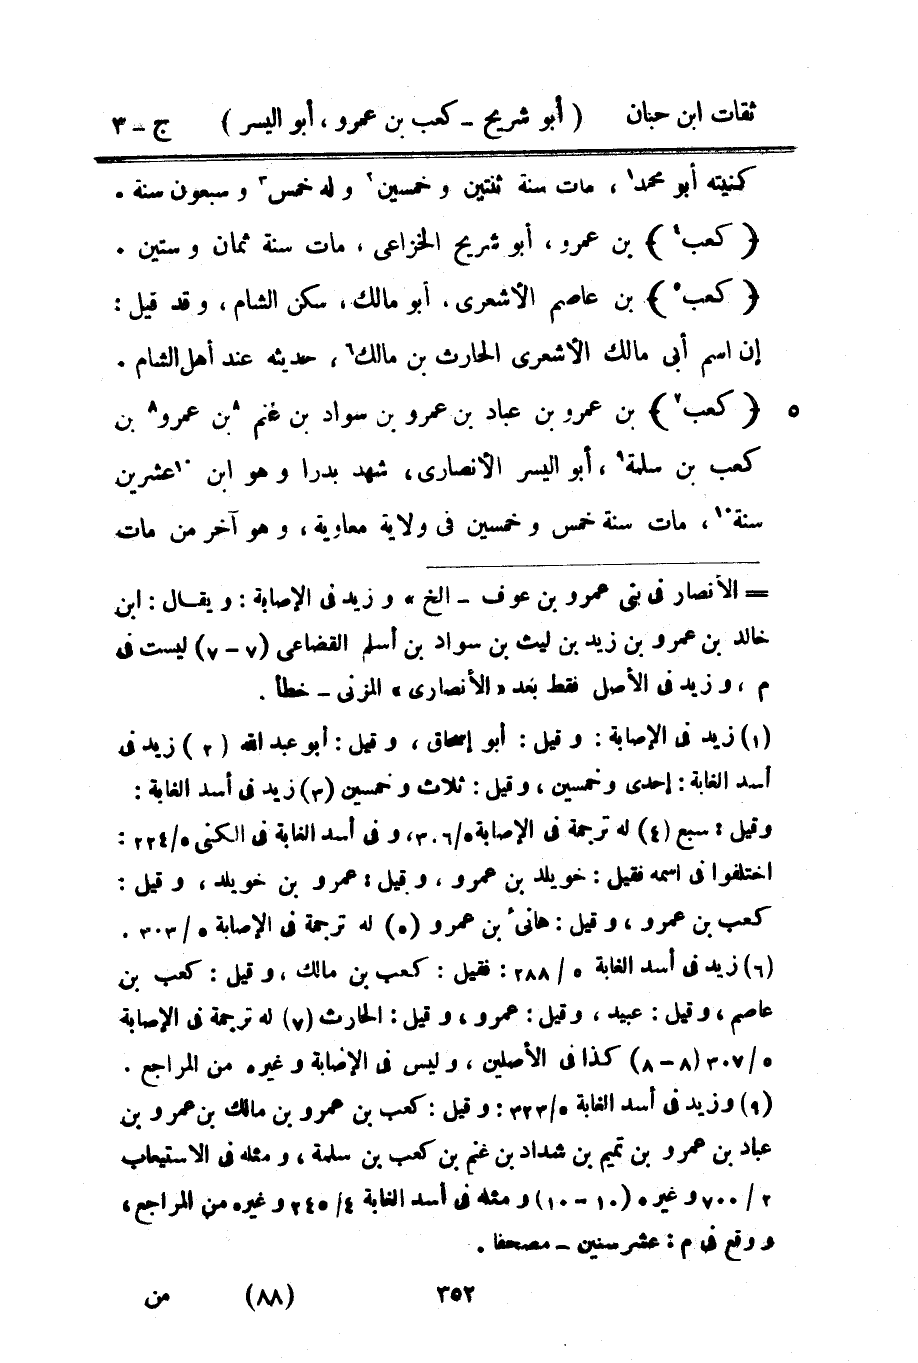 ثقات ابن حبان ( أبو شريح ـ كعب بن عمرو ، أبو اليسر ) ج ـ ٣
كنيته أبو محمد١ ، مات سنة ثنتين و خمسين٢ و له خمس٣ و سبعون سنة .
﴿ كعب٤ ﴾ بن عمرو ، أبو شريح الخزاعى ، مات سنة ثمان و ستين .
﴿ كعب٥ ﴾ بن عاصم الأشعرى ، أبو مالك ، سكن الشام ، و قد قيل :
إن اسم أبى مالك الأشعرى الحارث بن مالك٦ ، حديثه عند أهل الشام .
٥ ﴿ كعب٧ ﴾ بن عمرو بن عباد بن عمرو بن سواد بن غنم ٨بن عمرو٨ بن
كعب بن سلمة٩ ، أبو اليسر الأنصارى ، شهد بدرا و هو ابن ١٠عشرين
سنة١٠ ، مات سنة خمس و خمسين فى ولاية معاوية ، و هو آخر من مات
= الأنصار فى بنى عمرو بن عوف ـ الخ » و زيد فى الإصابة : و يقال : ابن
خالد بن عمرو بن زيد بن ليث بن سواد بن أسلم القضاعى (٧ – ٧) ليست فى
م ، و زيد فى الأصل فقط بعد « الأنصارى » المزنى ـ خطأ .
(١) زيد فى الإصابة : و قيل : أبو إسحاق ، و قيل : أبو عبد الله (٢) زيد فى
أسد الغابة : إحدى و خمسين ، و قيل : ثلاث و خمسين (٣) زيد فى أسد الغابة :
و قيل : سبع (٤) له ترجمة فى الإصابة ٣٠٦/٥، و فى أسد الغابة فى الكنى ٢٢٤/٥ :
اختلفوا فى اسمه فقيل : خويلد بن عمرو ، و قيل : عمرو بن خويلد ، و قيل :
كعب بن عمرو ، و قيل : هانىء بن عمرو (٥) له ترجمة فى الإصابة ٥ / ٣٠٣ .
(٦) زيد فى أسد الغابة ٥ / ٢٨٨ : فقيل : كعب بن مالك ، و قيل : كعب بن
عاصم ، و قيل : عبيد ، و قيل : عمرو ، و قيل : الحارث (٧) له ترجمة فى الإصابة
٥ / ٣٠٧ (٨ – ٨) كذا فى الأصلين ، و ليس فى الإصابة و غيره من المراجع .
(٩) و زيد فى أسد الغابة ٣٢٣/٥ : و قيل : كعب بن عمرو بن مالك بن عمرو بن
عباد بن عمرو بن تميم بن شداد بن غنم بن كعب بن سلمة ، و مثله فى الاستيعاب
٢ / ٧٠٠ و غيره (١٠ – ١٠) و مثله فى أسد الغابة ٤ / ٢٤٥ و غيره من المراجع ،
و وقع فى م : عشر سنين ـ مصحفا .
٣٥٢ (٨٨) من